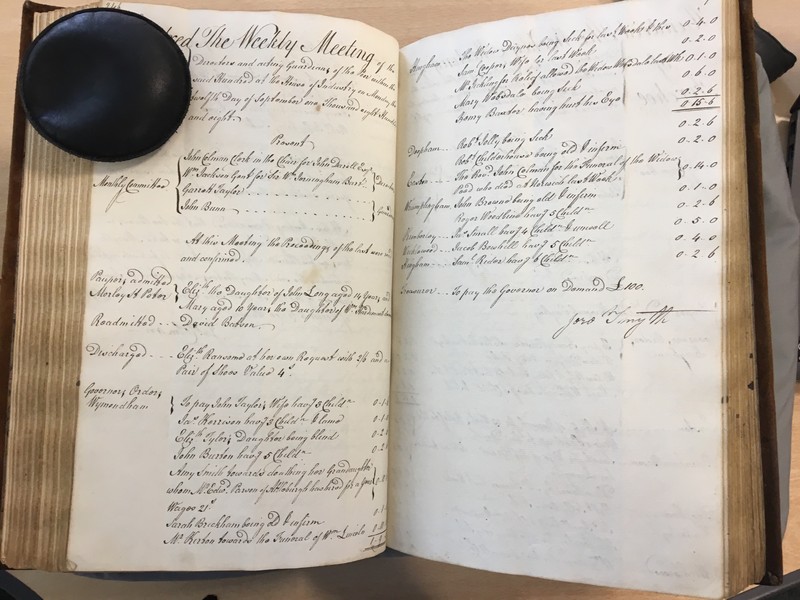 The Weekly Meeting of the
Directors and acting Guardians of the Poor within the
said Hundred at the House of Industry on Monday the
day of September one Thousand eight
and eight.
Present
Monthly Committee
John Colman Clerk in the Chair for John Darell Esqr.
Wm. Jackson Gent for Sir Wm. Jerningham Bart.
Garrett Taylor
John Bunn
At this Meeting the Proceedings of the last were
and confirmed.
Paupers admitted
Morley St. Peter
Elizth. the Daughter of John Long aged 14 Years and
Mary aged 10 Years the Daughter of Wm.
Readmitted David Batson
Discharged Elizth. Ransome at her own Request with 2/4 and a
Pair of Shoes Value 4s.
Governors Orders
Wymondham
To pay John Taylors Wife havg. 5 Childn.
Jas. Harrison havg. 5 Childn. & lame
Elizth. Tylers Daughter being blind
John Burton havg. 5 Childn.
Amy Smith towards cloathing her Grandaughter
whom Mr. Edwd. Parson of Attleburgh has hired for a Year
Wages 21s.
Sarah Breckham being old & infirm
Mr. Burton towards the Funeral of Wm. Lincoln
Hingham The Widow being Sick for last Week & this 0.4.0
Saml. Coopers Wife for last Week 0.2.0
for Relief allowed the Widow 0.1.0
Mary being Sick 0.6.0
Henry Baxter having hurt his Eye 0.2.6
0.15.6
Deopham Robt. Jolly being Sick 0.2.6
Robt. Childerhouse being old & infirm 0.2.0
The Revd. John Colman for the Funeral of the Widow
who died at Norwich last Week 0.14.0
John Browne being old & infirm 0.1.0
Roger Woodbine havg. 5 Childn. 0.2.6
Kimberley Jas. Small havg. 4 Childn. & unwell 0.5.0
Jacob Bowhill havg. 5 Childn. 0.4.0
Saml. Rider havg. 6 Childn. 0.2.6
Treasurer To pay the Governor on Demand £100.
Jero Smyth